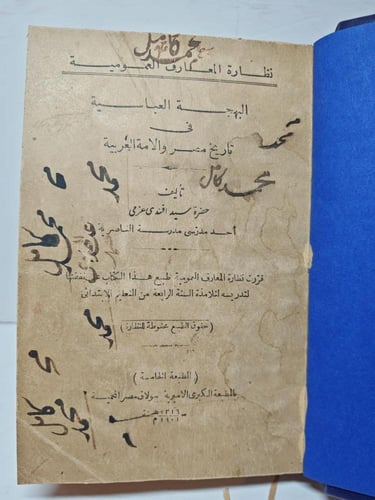 محمد كامل
نظارة المعارف العمومية
البهجة العباسية
فى
تاريخ مصر والامة العربية
محمد
محمد كامل
محمد
تأليف
حضرة سيد افندى عزمى
أحد مدرسى مدرسة الناصرية
محمد كامل
قررت نظارة المعارف العمومية طبع هذا الكتاب على نفقتها
لتدريسه لتلامذة السنة الرابعة من التعليم الابتدائى
محمد
(حقوق الطبع محفوظة للنظارة)
(الطبعة الخامسة)
بالمطبعة الكبرى الاميرية ببولاق مصر المحمية
سنة ١٣١٩ هـ
١٩٠١ م
محمد كامل